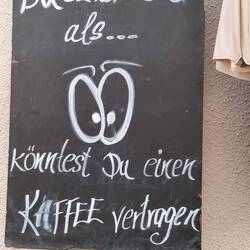 als...
könntest Du einen
KAFFEE vertragen